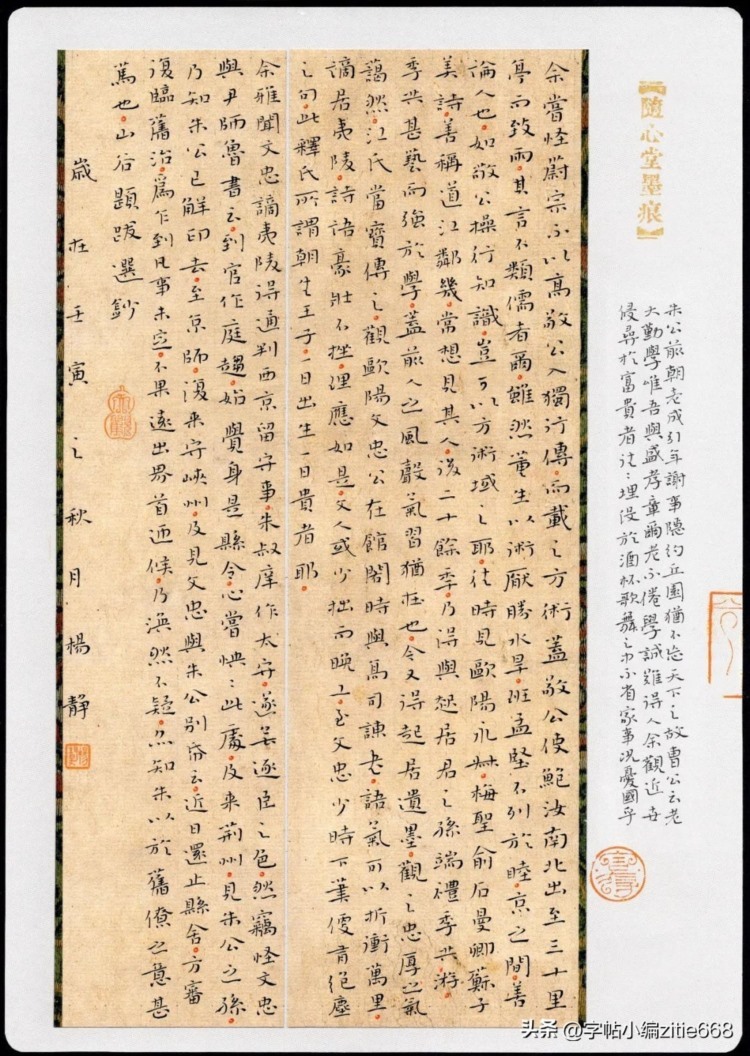 【隨心堂墨痕】
朱公前朝老成引年謝事隱約丘園猶不忘天下之故曹公云老
大勤學唯吾與盛孝章爾老不倦學誠難得人余觀近世
侵尋於富貴者往〻埋沒於酒杯歌舞之中不省家事況憂國乎
余嘗怪蔚宗不以高敬公入獨行傳而載之方術蓋敬公使鮑汝南北出至三十里
亭而致雨其言不類儒者爾雖然董生以術厭勝水旱班孟堅不列於眭京之間善
論人也如敬公操行知識豈可以方術域之耶往時見歐陽永叔梅聖俞石曼卿蘇子
美詩善稱道江鄰幾常想見其人後二十餘季乃得與起居君之孫端禮季共游
季共甚藝而強於學蓋前人之風聲氣習猶在也今又得起居遺墨觀之忠厚之氣
藹然江氏當寶傳之觀歐陽文忠公在館閣時與高司諫書語氣可以折衝萬里
謫居夷陵詩語豪壯不挫理應如是文人或少拙而晚工至文忠少時下筆便有絕塵
之句此釋氏所謂朝生王子一日出生一日貴者耶
余雅聞文忠謫夷陵得通判西京留守事朱叔庠作太守遂無逐臣之色然竊怪文忠
與尹師魯書云到官作庭趨始覺身是縣令心嘗怏〻此處及來荊州見朱公之孫
乃知朱公已解印去至京師復來守峽州及見文忠與朱公別紙云近日還止縣舍方審
復臨舊治為乍到凡事未定不果遠出界首迎候乃渙然不疑亦知朱以於舊僚之意甚
篤也山谷題跋選鈔
歲在壬寅之秋月楊靜
头条 @字帖小编zitie668